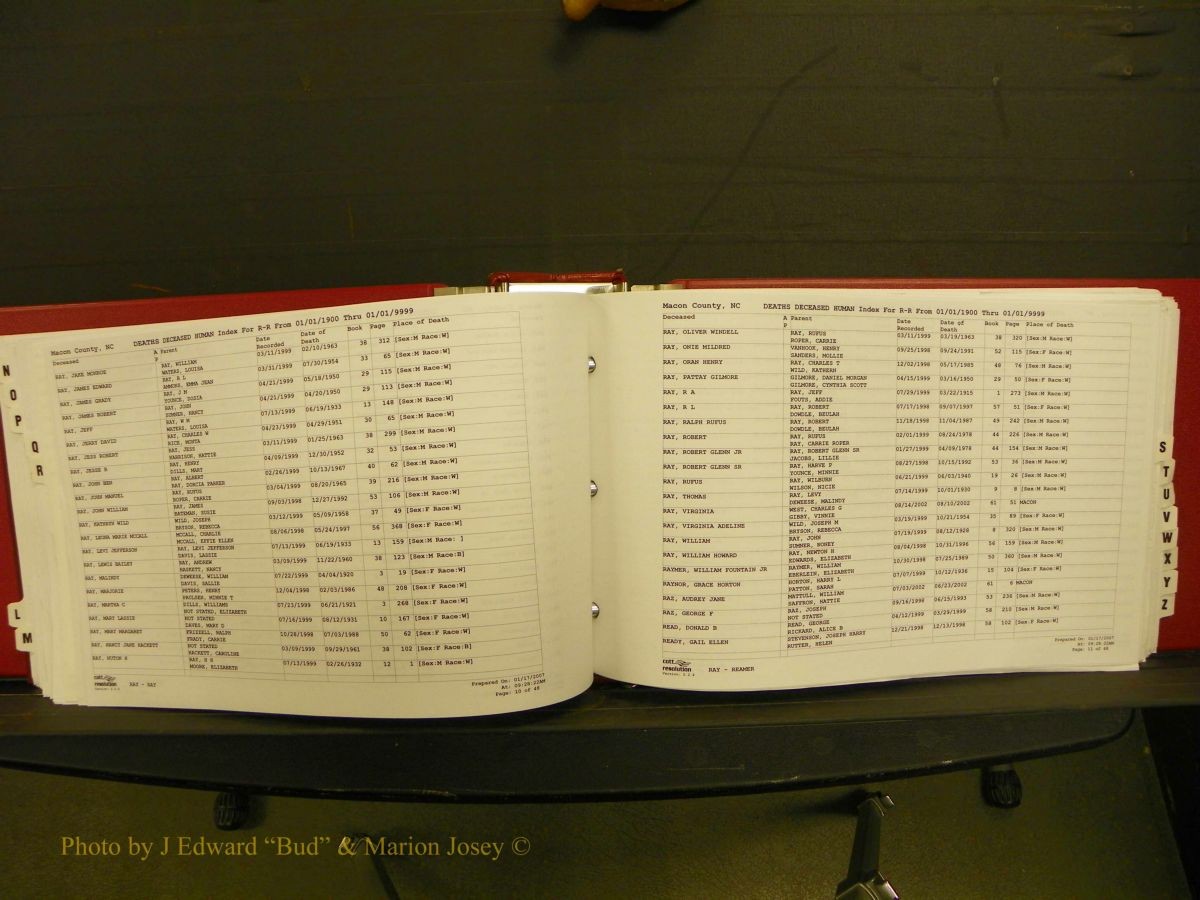 Macon County, NC DEATHS DECEASED HUMAN Index For R-R From 01/01/1900 Thru 01/01/9999
Deceased A Parent Date Recorded Date of Death Book Page Place of Death
P
RAY, JAKE MONROE RAY, WILLIAM 03/11/1999 02/10/1963 38 312 [Sex:M Race:W]
WATERS, LOUISA
RAY, JAMES EDWARD RAY, A L 03/31/1999 07/30/1954 33 65 [Sex:M Race:W]
AMMONS, EMMA JEAN
RAY, JAMES GRADY RAY, J M 04/21/1999 05/18/1950 29 115 [Sex:M Race:W]
YOUNCE, DOSIA
RAY, JAMES ROBERT RAY, JOHN 04/21/1999 04/20/1950 29 113 [Sex:M Race:W]
SUMNER, NANCY
RAY, JEFF RAY, W M 07/13/1999 06/19/1933 13 148 [Sex:M Race:W]
WATERS, LOUISA
RAY, JERRY DAVID RAY, CHARLES W 04/23/1999 04/29/1951 30 65 [Sex:M Race:W]
RICE, MONTA
RAY, JESS ROBERT RAY, JESS 03/11/1999 01/25/1963 38 299 [Sex:M Race:W]
HARRISON, HATTIE
RAY, JESSE R RAY, HENRY 04/09/1999 12/30/1952 32 53 [Sex:M Race:W]
DILLS, MARY
RAY, JOHN BEN RAY, ALBERT 02/26/1999 10/13/1967 40 62 [Sex:M Race:W]
RAY, DORCIA PARKER
RAY, JOHN MANUEL RAY, RUFUS 03/04/1999 08/20/1965 39 216 [Sex:M Race:W]
ROPER, CARRIE
RAY, JOHN WILLIAM RAY, JAMES 09/03/1998 12/27/1992 53 106 [Sex:M Race:W]
BATEMAN, SUSIE
RAY, KATHRYN WILD WILD, JOSEPH 03/12/1999 05/09/1958 37 49 [Sex:F Race:W]
BRYSON, REBECCA
RAY, LEONA MARIE MCCALL MCCALL, CHARLIE 08/06/1998 05/24/1997 56 368 [Sex:F Race:W]
MCCALL, EFFIE ELLEN
RAY, LEVI JEFFERSON RAY, LEVI JEFFERSON 07/13/1999 06/19/1933 13 159 [Sex:M Race: ]
DAVIS, LASSIE
RAY, LEWIS BAILEY RAY, ANDREW 03/09/1999 11/22/1960 38 123 [Sex:M Race:B]
HASKETT, NANCY
RAY, MALINDY DEWEESE, WILLIAM 07/22/1999 04/04/1920 3 19 [Sex:F Race:W]
DAVIS, SALLIE
RAY, MARJORIE PETERS, HENRY 12/04/1998 02/03/1986 48 208 [Sex:F Race:W]
PAULSEN, MINNIE T
RAY, MARTHA C DILLS, WILLIAMS 07/23/1999 06/21/1921 3 268 [Sex:F Race:W]
NOT STATED, ELIZABETH
RAY, MARY LASSIE NOT STATED 07/16/1999 08/12/1931 10 167 [Sex:F Race:W]
DAVES, MARY D
RAY, MARY MARGARET FRIZZELL, RALPH 10/28/1998 07/03/1988 50 62 [Sex:F Race:W]
FRADY, CARRIE
RAY, NANCY JANE HACKETT NOT STATED 03/09/1999 09/29/1961 38 102 [Sex:F Race:B]
HACKETT, CAROLINE
RAY, NUTON H RAY, H H 07/13/1999 02/26/1932 12 1 [Sex:M Race:W]
MOORE, ELIZABETH
cott
resolution
RAY - RAY
Prepared On: 01/17/2007
At: 09:28:22AM
Page: 10 of 48
Macon County, NC DEATHS DECEASED HUMAN Index For R-R From 01/01/1900 Thru 01/01/9999
Deceased A Parent Date Recorded Date of Death Book Page Place of Death
P
RAY, OLIVER WINDELL RAY, RUFUS 03/11/1999 03/19/1963 38 320 [Sex:M Race:W]
ROPER, CARRIE
RAY, ONIE MILDRED VANHOOK, HENRY 09/25/1998 09/24/1991 52 115 [Sex:F Race:W]
SANDERS, MOLLIE
RAY, ORAN HENRY RAY, CHARLES T 12/02/1998 05/17/1985 48 76 [Sex:M Race:W]
WILD, KATHERN
RAY, PATTAY GILMORE GILMORE, DANIEL MORGAN 04/15/1999 03/16/1950 29 50 [Sex:F Race:W]
GILMORE, CYNTHIA SCOTT
RAY, R A RAY, JEFF 07/29/1999 03/22/1915 1 273 [Sex:M Race:W]
FOUTS, ADDIE
RAY, R L RAY, ROBERT 07/17/1998 09/07/1997 57 51 [Sex:F Race:W]
DOWDLE, BEULAH
RAY, RALPH RUFUS RAY, ROBERT 11/18/1998 11/04/1987 49 242 [Sex:M Race:W]
DOWDLE, BEULAH
RAY, ROBERT RAY, RUFUS 02/01/1999 08/24/1978 44 226 [Sex:M Race:W]
RAY, CARRIE ROPER
RAY, ROBERT GLENN JR RAY, ROBERT GLENN SR 01/27/1999 04/09/1978 44 154 [Sex:M Race:W]
JACOBS, LILLIE
RAY, ROBERT GLENN SR RAY, HARVE P 08/27/1998 10/15/1992 53 36 [Sex:M Race:W]
YOUNCE, MINNIE
RAY, RUFUS RAY, WILBURN 06/21/1999 06/03/1940 19 26 [Sex:M Race:W]
WILSON, NICIE
RAY, THOMAS RAY, LEVI 07/14/1999 10/01/1930 9 8 [Sex:M Race:W]
DEWEESE, MALINDY
RAY, VIRGINIA WEST, CHARLES G 08/14/2002 08/10/2002 61 51 MACON
GIBBY, VINNIE
RAY, VIRGINIA ADELINE WILD, JOSEPH M 03/19/1999 10/21/1954 35 89 [Sex:F Race:W]
BRYSON, REBECCA
RAY, WILLIAM RAY, JOHN 07/19/1999 08/12/1928 8 320 [Sex:M Race:W]
SUMNER, NONEY
RAY, WILLIAM HOWARD RAY, NEWTON H 08/04/1998 10/31/1996 56 159 [Sex:M Race:W]
EDWARDS, ELIZABETH
RAYMER, WILLIAM FOUNTAIN JR RAYMER, WILLIAM 10/30/1998 07/25/1989 50 360 [Sex:M Race:W]
EBERLEIN, ELIZABETH
RAYNOR, GRACE HORTON HORTON, HARRY L 07/07/1999 10/12/1936 15 104 [Sex:F Race:W]
PATTON, SARAH
RAZ, AUDREY JANE MATTULL, WILLIAM 07/03/2002 06/23/2002 61 6 MACON
SAFFRON, HATTIE
RAZ, GEORGE F RAZ, JOSEPH 09/16/1998 06/15/1993 53 236 [Sex:M Race:W]
NOT STATED
READ, DONALD B READ, GEORGE 04/12/1999 03/29/1999 58 210 [Sex:M Race:W]
RICKARD, ALICE B
READY, GAIL ELLEN STEVENSON, JOSEPH HARRY 12/21/1998 12/13/1998 58 102 [Sex:F Race:W]
RUTYER, HELEN
cott
resolution
RAY - REAMER
Prepared On: 01/17/2007
At: 09:28:22AM
Page: 11 of 48
N
O
P
Q
R
L
M
S
T
U
V
W
X
Y
Z
Photo by J Edward “Bud” & Marion Josey ©